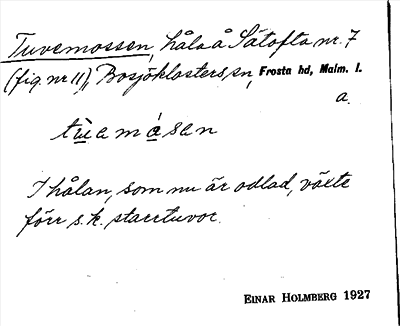 Tuvemossen, håla å Sätofta nr. 7
(fig. nr 11), Bosjöklosters sn, Frosta hd, Malm. l.
a.
tùemåsan
I hålan, som nu är odlad, växte
förr s.k. starrtuvor.
EINAR HOLMBERG 1927